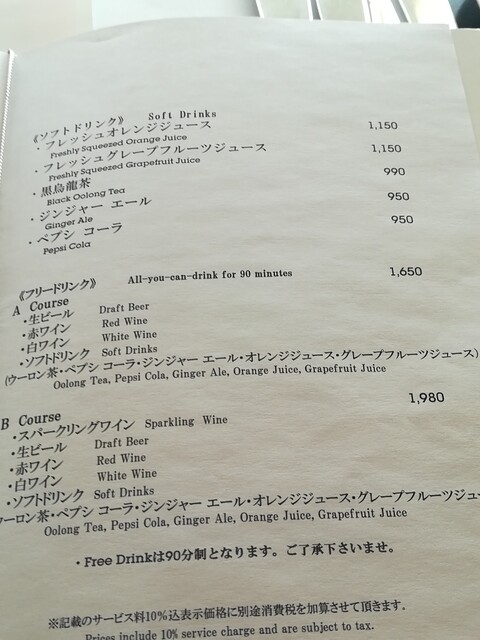 《ソフトドリンク》 Soft Drinks
・フレッシュオレンジジュース 1,150
Freshly Squeezed Orange Juice
・フレッシュグレープフルーツジュース 1,150
Freshly Squeezed Grapefruit Juice
・黒烏龍茶 990
Black Oolong Tea
・ジンジャー エール 950
Ginger Ale
・ペプシ コーラ 950
Pepsi Cola
《フリードリンク》 All-you-can-drink for 90 minutes 1,650
A Course
・生ビール Draft Beer
・赤ワイン Red Wine
・白ワイン White Wine
・ソフトドリンク Soft Drinks
(ウーロン茶・ペプシ コーラ・ジンジャー エール・オレンジジュース・グレープフルーツジュース)
Oolong Tea, Pepsi Cola, Ginger Ale, Orange Juice, Grapefruit Juice
B Course 1,980
・スパークリングワイン Sparkling Wine
・生ビール Draft Beer
・赤ワイン Red Wine
・白ワイン White Wine
・ソフトドリンク Soft Drinks
ウーロン茶・ペプシ コーラ・ジンジャー エール・オレンジジュース・グレープフルーツジュー
Oolong Tea, Pepsi Cola, Ginger Ale, Orange Juice, Grapefruit Juice
・Free Drinkは90分制となります。ご了承下さいませ。
※記載のサービス料10%込表示価格に別途消費税を加算させて頂きます.
Prices include 10% service charge and are subject to tax.